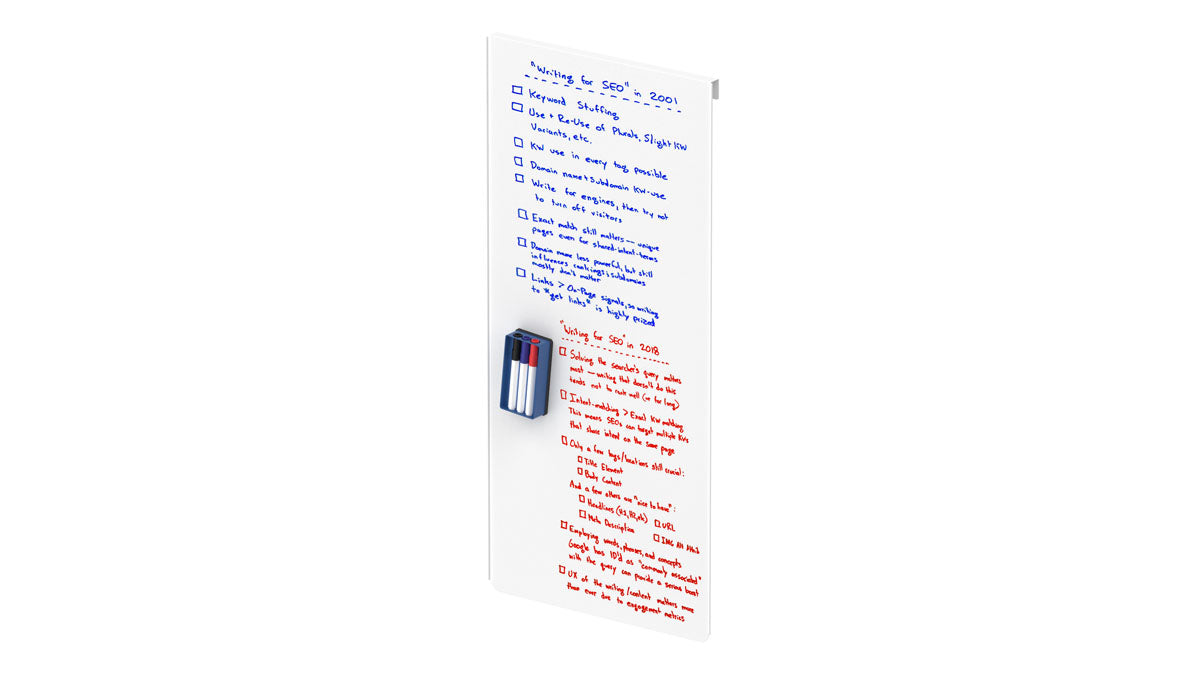 "Writing for SEO" in 2001
Keyword Stuffing
Use + Re-Use of Plurals, Slight KW
Variants, etc.
KW use in every tag possible
Domain name + Subdomain KW-use
Write for engines, then try not
to turn off visitors
Exact match still matters — unique
pages even for shared-intent-terms
Domain name less powerful, but still
influences rankings; subdomains
mostly don't matter
Links > On-Page signals, so writing
to "get links" is highly prized
"Writing for SEO" in 2018
Solving the searcher's query matters
most — writing that doesn't do this
tends not to rank well (or for long)
Intent-matching > Exact KW matching
This means SEOs can target multiple KWs
that share intent on the same page
Only a few tags/locations still crucial:
Title Element
Body Content
And a few others are "nice to have":
Headlines (H1, H2, etc) URL
Meta Description IMG Alt Attrib
Employing words, phrases, and concepts
Google has ID'd as "commonly associated"
with the query can provide a serious boost
UX of the writing/content matters more
than ever due to engagement metrics